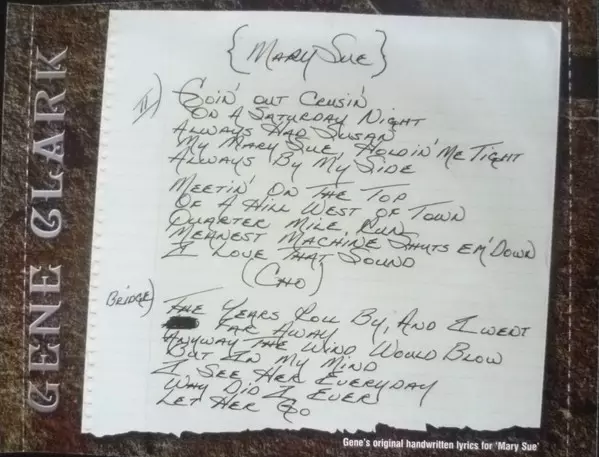 GENE CLARK
{MARY SUE}
II) GOIN' OUT CRUSIN'
ON A SATURDAY NIGHT
ALWAYS HAD SUSAN
MY MARY SUE, HOLDIN' ME TIGHT
ALWAYS BY MY SIDE
MEETIN' ON THE TOP
OF A HILL WEST OF TOWN
QUARTER MILE RUN
MEANEST MACHINE SHUTS EM' DOWN
I LOVE THAT SOUND
(CHO)
BRIDGE) THE YEARS ROLL BY, AND I WENT
FAR AWAY
ANYWAY THE WIND WOULD BLOW
BUT IN MY MIND
I SEE HER EVERYDAY
WHY DID I EVER
LET HER GO
Gene's original handwritten lyrics for 'Mary Sue'